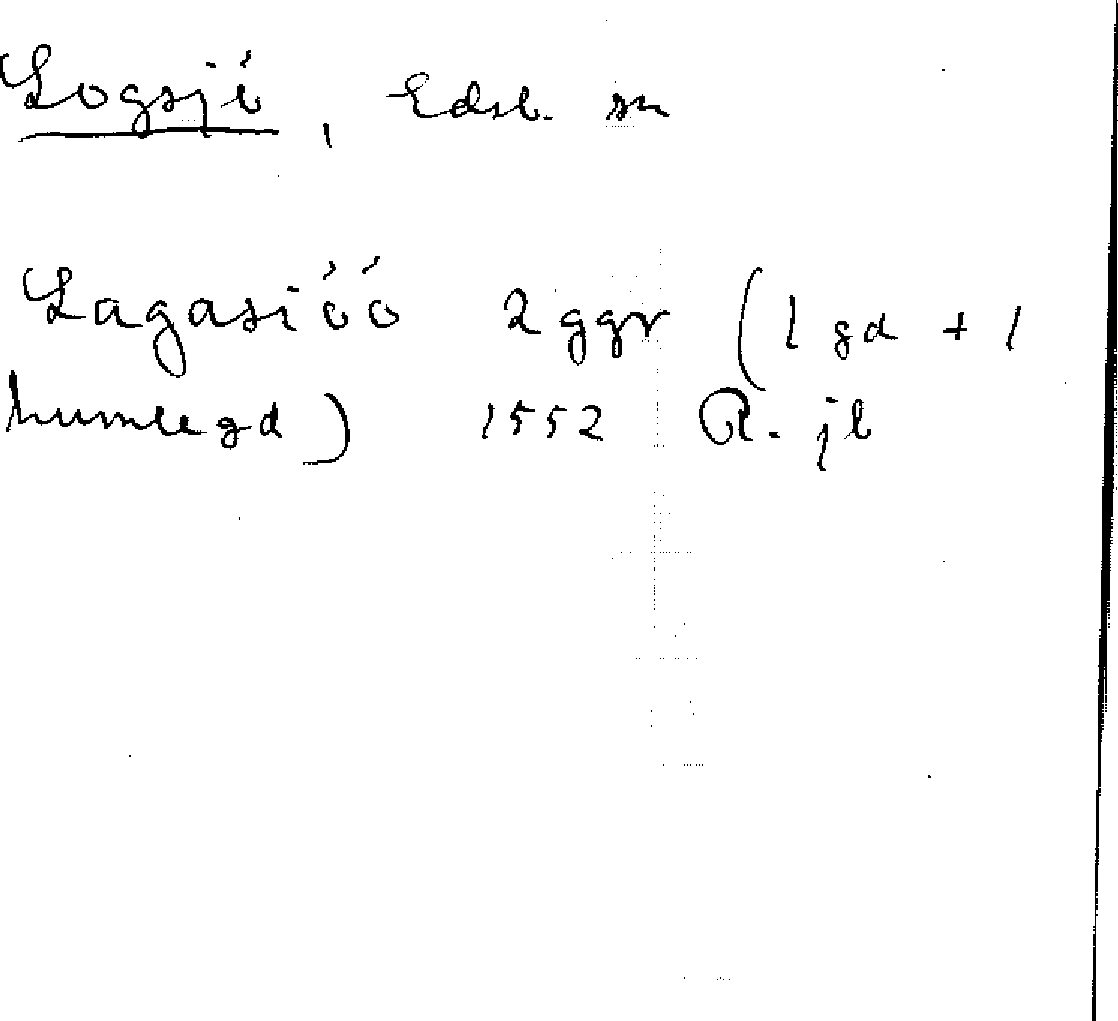 Logsjö, Edsb. sn
Lagasióó 2 ggr (1 gd + 1
humlegd) 1552 R. jb